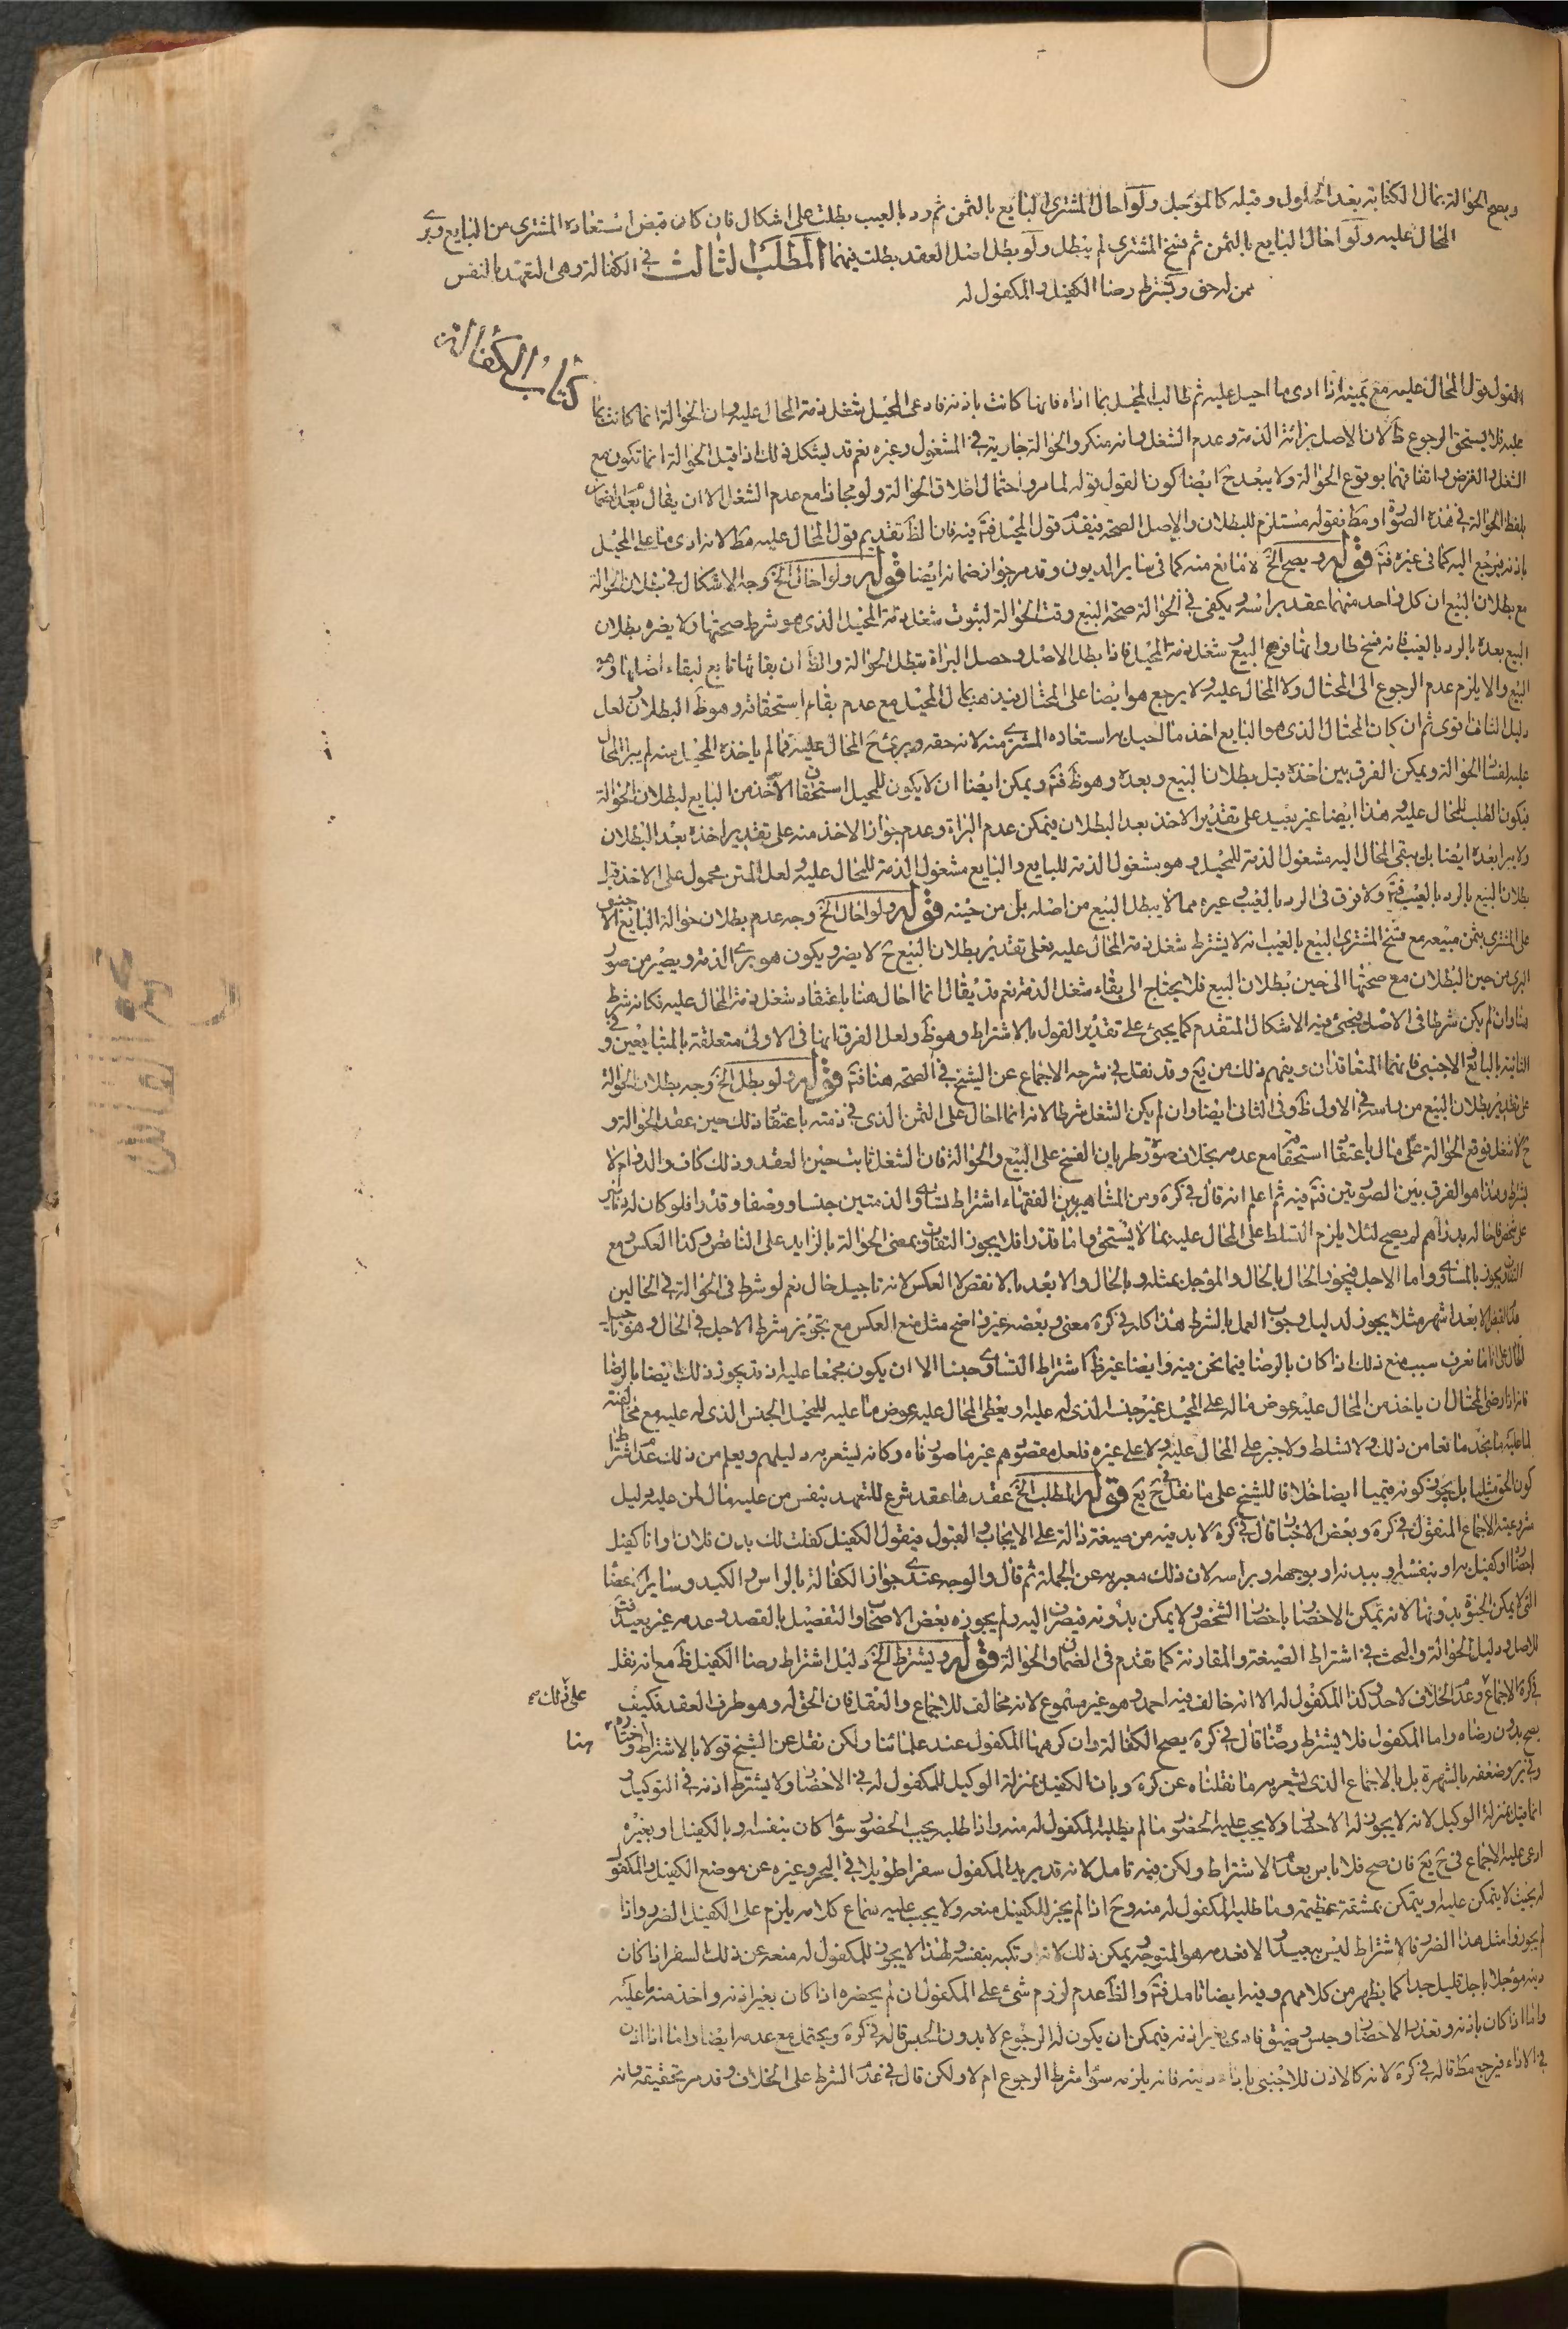 ويصح الحوالة بمال الكتابة بعد الحلول وقبله كالمؤجل ولو احال المشتري البايع بالثمن ثم رد بالعيب بطلت على اشكال فان كان قبض استعاده المشتري من البايع وبرئ
المحال عليه ولو احال البايع بالثمن ثم فسخ المشتري لم يبطل ولو بطل اصل العقد بطلت فيهما المطلب الثالث في الكفالة وهي التعهد بالنفس
ممن له حق ويشترط رضا الكفيل والمكفول له
كتاب الكفالة
القول قول المحال عليه مع يمينه اذا ادى ما احيل عليه ثم طالب المحيل بما اداه فانها كانت باذنه فادعى المحيل شغل ذمة المحال عليه وان الحوالة انما كانت بما
عليه فلا يستحق الرجوع ظ لان الاصل برائة الذمة وعدم الشغل وانه منكر والحوالة جارية في المشغول وغيره نعم قد يشكل ذلك اذا قيل الحوالة انما تكون مع
الشغل والغرض واتفاقهما بوقوع الحوالة ولا يبعد ح ايضا كون القول قوله لما مر واحتمال اطلاق الحوالة ولو مجازا مع عدم الشغل الا ان يقال بعد الضمان
بلفظ الحوالة في هذه الصورة او مط فقوله مستلزم للبطلان والاصل الصحة فيقدم قول المحيل فتم فيه فان الظ تقديم قول المحال عليه مط لانه ادى ما على المحيل
باذنه فيرجع اليه كما في غيره فتم قوله ويصح الخ لا مانع منه كما في ساير الديون وقد مر جواز ضمانه ايضا قوله ولو احال الخ وجه الاشكال في بطلان الحوالة
مع بطلان البيع ان كل واحد منهما عقد براسه ويكفى في الحوالة صحة البيع وقت الحوالة لثبوت شغل ذمة المحيل الذي هو شرط صحتها ولا يضره بطلان
البيع بعده بالرد بالعيب فانه فسخ طار وانها فرع البيع وشغل ذمة المحيل فاذا بطل الاصل وحصل البراة بطل الحوالة والظ ان بقائها تابع لبقاء اصلها وهو
البيع والا يلزم عدم الرجوع الى المحتال ولا المحال عليه ولا يرجع هو ايضا على المحتال فيذهب مال المحيل مع عدم بقاء استحقاقه وهو ظ البطلان ولعل
دليل الثاني اقوى ثم ان كان المحتال الذي هو البايع اخذ ما احيل به استعاده المشتري منه لانه حقه وبرئ ح المحال عليه فما لم ياخذه المحيل منه لم يبرا المحال
عليه لفساد الحوالة ويمكن الفرق بين اخذه قبل بطلان البيع وبعده وهو ظ فتم ويمكن ايضا ان لا يكون للمحيل استحقاق الاخذ من البايع لبطلان الحوالة
فيكون الطلب للمحال عليه وهذا ايضا غير بعيد على تقدير الاخذ بعد البطلان فيمكن عدم البراة وعدم جواز الاخذ منه على تقدير اخذه بعد البطلان
ولا يبرا بعده ايضا بل يبقى المحال اليه مشغول الذمة للمحيل وهو مشغول الذمة للبايع والبايع مشغول الذمة للمحال عليه ولعل المتن محمول على الاخذ قبل
بطلان البيع بالرد بالعيب فتم ولا فرق في الرد بالعيب وغيره مما لا يبطل البيع من اصله بل من حينه قوله ولو احال الخ وجه عدم بطلان حوالة البايع الاجنبي
على المشتري بثمن مبيعه مع فسخ المشتري البيع بالعيب انه لا يشترط شغل ذمة المحال عليه فعلى تقدير بطلان البيع ح لا يضر ويكون هو برئ الذمة ويصير من صور
البرى من حين البطلان مع صحتها الى حين بطلان البيع فلا يحتاج الى بقاء شغل الذمة نعم قد يقال انما احال هنا باعتقاد شغل ذمة المحال عليه فكانه شرط
هنا وان لم يكن شرطا في الاصل فيجئ فيه الاشكال المتقدم كما يجئ على تقدير القول بالاشتراط وهو ظ ولعل الفرق انها في الاولى متعلقة بالمتبايعين وفي
الثانية بالبايع والاجنبي فانهما المتعاقدان ويفهم ذلك من يع وقد نقل في شرحه الاجماع عن الشيخ في الصحة هنا فتم قوله ولو بطل الخ وجه بطلان الحوالة
على تقدير بطلان البيع من راسه في الاولى ظ وفي الثاني ايضا وان لم يكن الشغل شرطا لانه انما احال على الثمن الذي في ذمته باعتقاد ذلك حين عقد الحوالة و
ح لا شغل فوقع الحوالة على مال باعتقاد استحقاقه مع عدمه بخلاف صورة طريان الفسخ على البيع والحوالة فان الشغل ثابت حين العقد وذلك كاف والدوام لا
يشترط وهذا هو الفرق بين الصورتين فتم فيه ثم اعلم انه قال في كرة ومن المشاهير بين الفقهاء اشتراط تساوى الذمتين جنسا ووصفا وقدرا فلو كان له دنانير
على شخص فاحاله بدراهم لم يصح لئلا يلزم التسلط على المحال عليه بما لا يستحق واما قدرا فلا يجوز التفاوت بمعنى الحوالة بالزايد على الناقص وكذا العكس ومع
يجوز بالمساوي واما الاجل فيجوز الحال بالحال والمؤجل بمثله وبالحال والابعد بالانقص لا العكس لانه تاجيل حال نعم لو شرط في الحوالة في الحالين
الا بعد شهر مثلا يجوز لدليل وجوب العمل بالشرط هذا كله في كرة معنى وبعضه غير واضح مثل منع العكس مع تجويز شرط الاجل في الحال وهو تاجيل
الحال على انا ما نعرف سبب منع ذلك اذا كان بالرضا فيما نحن فيه وايضا غير ظ اشتراط التساوي جنسا الا ان يكون مجمعا عليه اذ قد يجوز ذلك ايضا بالرضا
فانه اذا رضى المحتال ان ياخذ من المحال عليه عوض ماله على المحيل غير جنسه الذي له عليه ويعطى المحال عليه عوض ما عليه للمحيل الجنس الذي له عليه مع مخالفته
لما عليه ما نجد مانعا من ذلك ولا تسلط ولا جبر على المحال عليه ولا على غيره فلعل مقصودهم غير ما صورناه وكانه ليشعر به دليلهم ويعلم من ذلك عدم اشتراط
كون الحق مثليا بل يجوز كونه قيميا ايضا خلافا للشيخ على ما نقل في ح يع قوله المطلب الخ عقدها عقد شرع للتعهد بنفس من عليه مال لمن عليه ودليل
شرعيته الاجماع المنقول في كرة وبعض الاخبار قال في كرة لا بد فيه من صيغة دالة على الايجاب والقبول فيقول الكفيل كفلت لك بدن فلان وانا كفيل
احضاره او كفيل به او بنفسه او ببدنه او بوجهه او براسه لان ذلك معبر به عن الجملة ثم قال والوجه عندي جواز الكفالة بالراس والكبد وساير الاعضاء
التي لا يمكن الحيوة بدونها لانه يمكن الاحضار باحضار الشخص ولا يمكن بدونه فيصرف اليه ولم يجوزه بعض الاصحاب والتفصيل بالقصد وعدمه غير بعيد فتم
للاصل ودليل الحوالة والبحث في اشتراط الصيغة والمقارنة كما تقدم في الضمان والحوالة قوله ويشترط الخ دليل اشتراط رضا الكفيل ظ مع انه نقل
في كرة الاجماع على ذلك وعدم الخلاف لاحد وكذا المكفول له الا انه خالف فيه احمد وهو غير مسموع لانه مخالف للاجماع والعقل فان الحق له وهو طرف العقد فكيف
يصح بدون رضاه واما المكفول فلا يشترط رضاه هنا قال في كرة يصح الكفالة وان كرهها المكفول عند علمائنا ولكن نقل عن الشيخ قولا بالاشتراط واختاره
وضعفه بالشهرة بل بالاجماع الذي ليشعر به ما نقلناه عن كرة وبان الكفيل بمنزلة الوكيل للمكفول له في الاحضار ولا يشترط اذنه في التوكيل و
انما قيل بمنزلة الوكيل لانه لا يجوز له الاحضار ولا يجب عليه الحضور ما لم يطلبه المكفول له منه واذا طلبه يجب الحضور سواء كان بنفسه او بالكفيل او بغيره
ادعى عليه الاجماع في ح يع فان صح فلا باس بعدم الاشتراط ولكن فيه تامل لانه قد يريد المكفول سفرا طويلا في البحر وغيره عن موضع الكفيل والمكفول
له بحيث لا يتمكن عليه او يتمكن بمشقة عظيمة وما طلبه المكفول له منه وح اذا لم يجز للكفيل منعه ولا يجب عليه سماع كلامه يلزم على الكفيل الضرر واذا
لم يجوزوا مثل هذا الضرر فالاشتراط ليس ببعيد والا فعدمه هو المتوجه ويمكن ذلك لانه ارتكبه بنفسه ولهذا لا يجوز للمكفول له منعه عن ذلك السفر اذا كان
دينه مؤجلا باجل قليل جدا كما يظهر من كلامهم وفيه ايضا تامل فتم والظ عدم لزوم شئ على المكفول ان لم يحضره اذا كان بغير اذنه واخذ منه ما عليه
واما اذا كان باذنه وتعذر الاحضار وحبس وضيق فادى بغير اذنه فيمكن ان يكون له الرجوع لا بدون الحبس قاله في كرة ويحتمل مع عدمه ايضا واما اذا اذن
في الاداء فيرجع مط قاله في كرة لانه كالاذن للاجنبي باداء دينه فانه يلزمه سواء شرط الرجوع ام لا ولكن قال في عدم الشرط على الخلاف وقد مر تحقيقه وانه